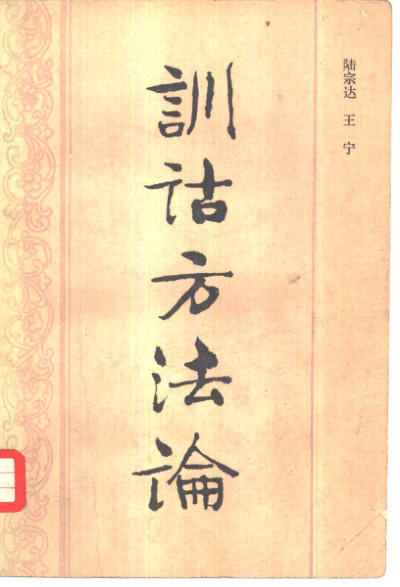 陆宗达 王 宁
訓诂方法論